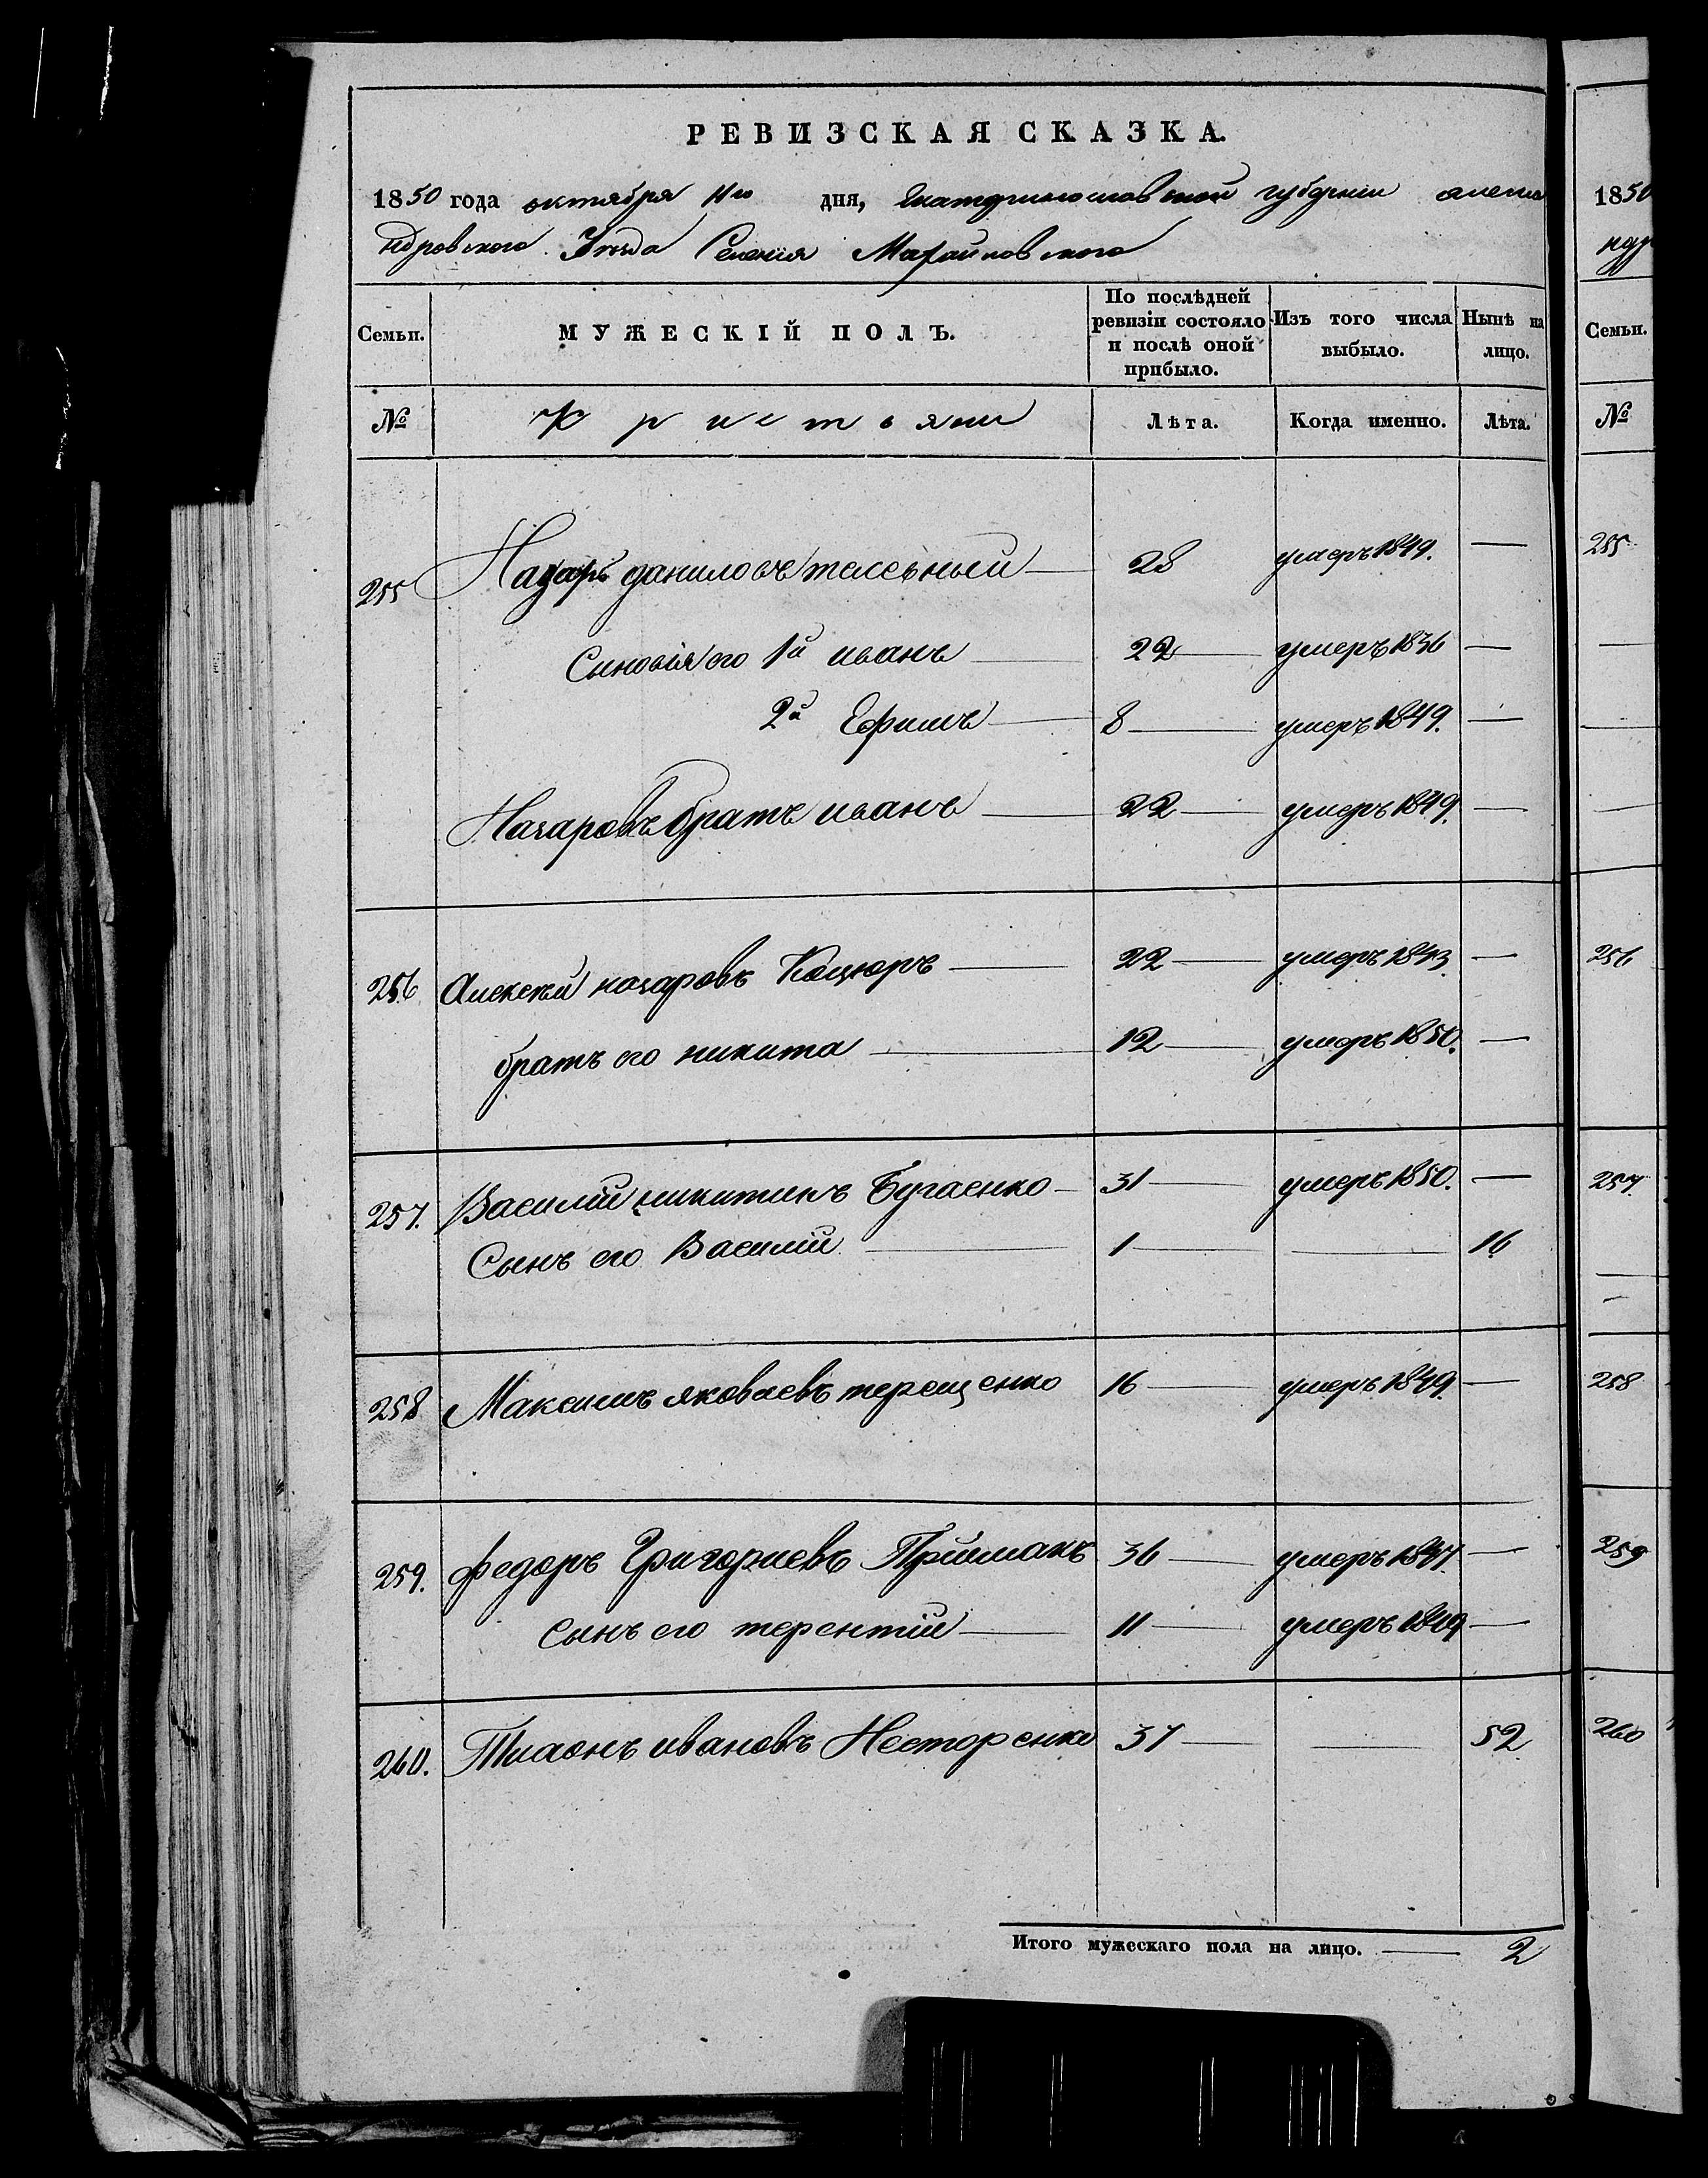 РЕВИЗСКАЯ СКАЗКА.
1850 года октября 11го дня, Екатеринославской губернии алекса
ндровского Уезда Селения
Семьи. МУЖЕСКІЙ ПОЛЪ. По послѣдней ревизіи состояло и послѣ оной прибыло. Изъ того числа выбыло. Нынѣ на лицо.
№ Кристьяни Лѣта. Когда именно. Лѣта.
255 Назаръ даниловъ 28 умеръ 1849. —
Синовія его 1й иванъ 22 умеръ 1836 —
2й Ефимъ 8 умеръ 1849. —
Назаровъ братъ иванъ 22 умеръ 1849. —
256 Алексей назаровъ Коцюръ 22 умеръ 1843 —
братъ его никита 12 умеръ 1850. —
257. Василій никитинъ Бугаенко 31 умеръ 1850. —
Сынъ его Василій 1 — 16
258 Максимъ яковлевъ терещенко 16 умеръ 1849. —
259. федоръ Григориевъ Приймакъ 36 умеръ 1847 —
сынъ его терентий 11 умеръ 1849 —
260. ивановъ Несторенко 37 — 52
Итого мужескаго пола на лицо. — 2
1850
ндр
Семьи.
№
255
256
257.
258
259
260